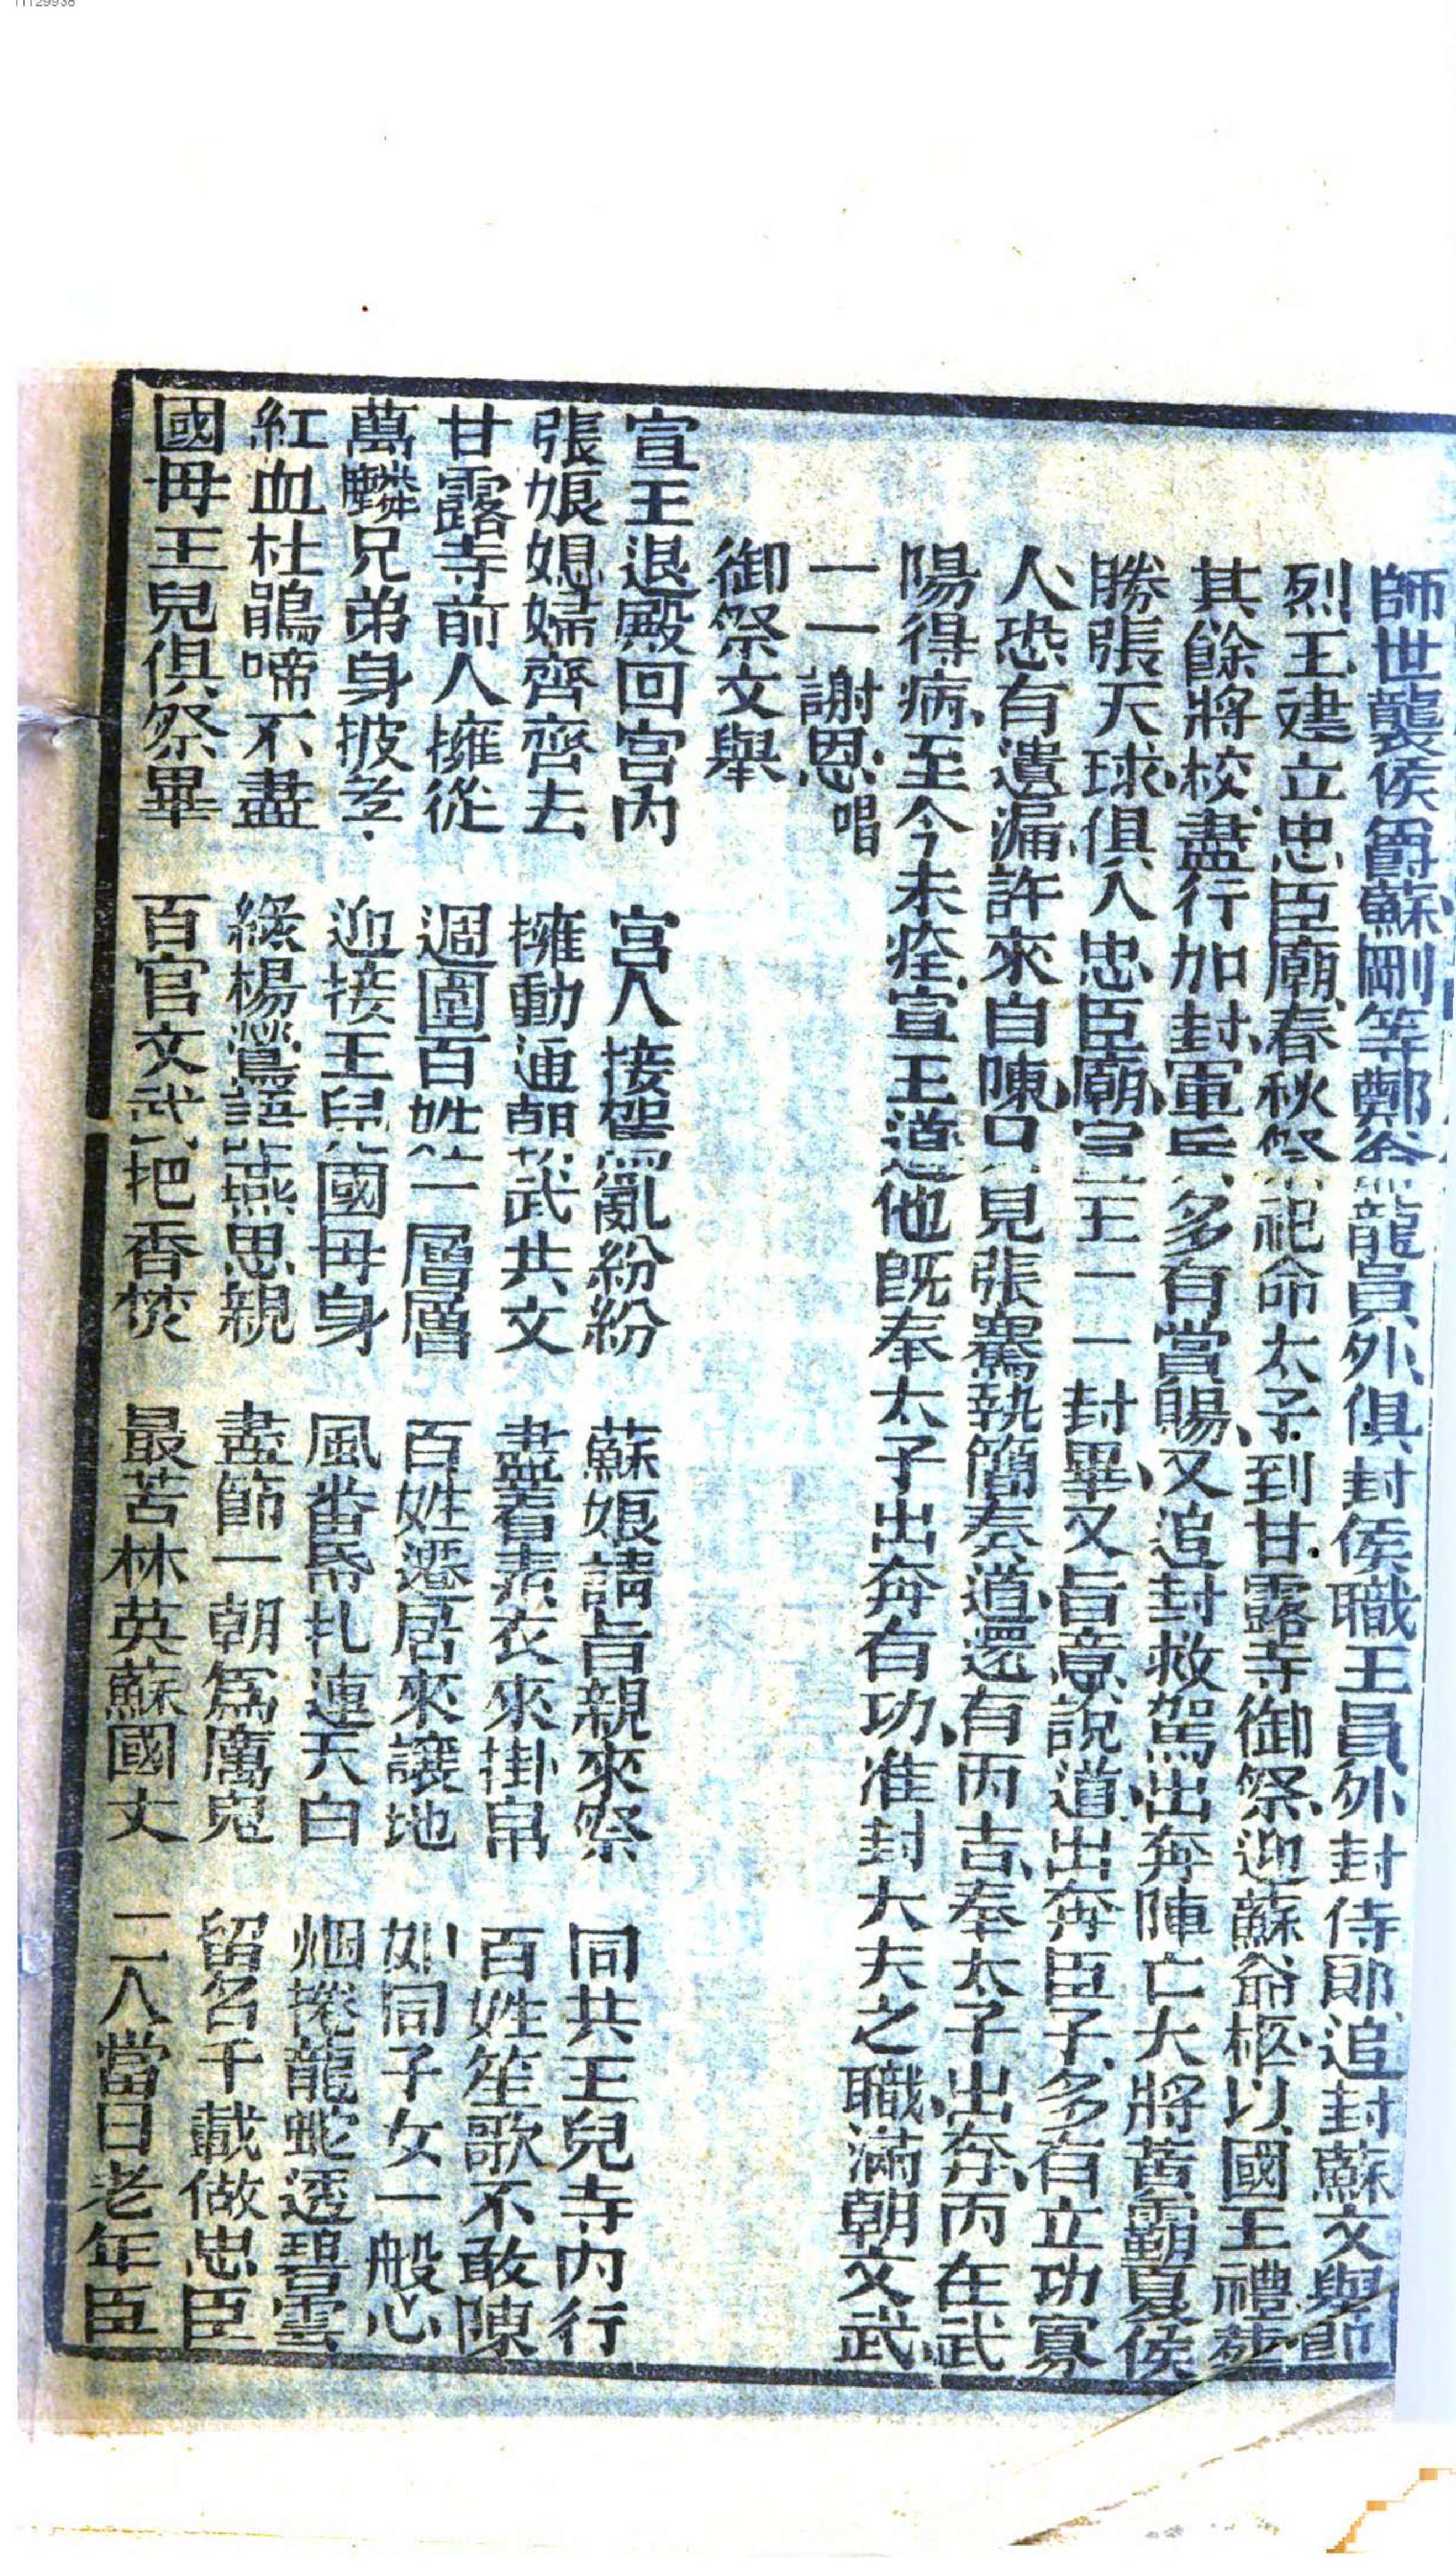 11129938
師世襲侯爵蘇剛等鄭爺龍員外俱封侯職王員外封侍郎追封蘇文舉節
烈王建立忠臣廟春秋祭祀命太子到甘露寺御祭迎蘇爺柩以國王禮葬
其餘將校盡行加封軍兵多有賞賜又追封救駕出奔陣亡大將黃霸夏侯
勝張天球俱入忠臣廟宣王一一封畢又旨意說道出奔臣子多有立功寡
人恐有遺漏許來自陳只見張騫執簡奏道還有丙吉奉太子出奔丙在武
陽得病至今未痊宣王道他既奉太子出奔有功准封大夫之職滿朝文武
一一謝恩唱
御祭文舉
宣王退殿回宮內 宮人接駕亂紛紛 蘇娘請旨親來祭 同共王兒寺內行
張娘媳婦齊齊去 擁動通朝武共文 盡著素衣來掛帛 百姓笙歌不敢陳
甘露寺前人擁從 週圍百姓一層層 百姓遷居來讓地 如同子女一般心
萬麟兄弟身披孝 迎接王兒國母身 風番帛扎連天白 烟捲龍蛇透碧雲
紅血杜鵑啼不盡 綠楊鶯語燕思親 盡節一朝為厲鬼 留名千載做忠臣
國母王兒俱祭畢 百官文武把香焚 最苦林英蘇國丈 二人當日老年臣